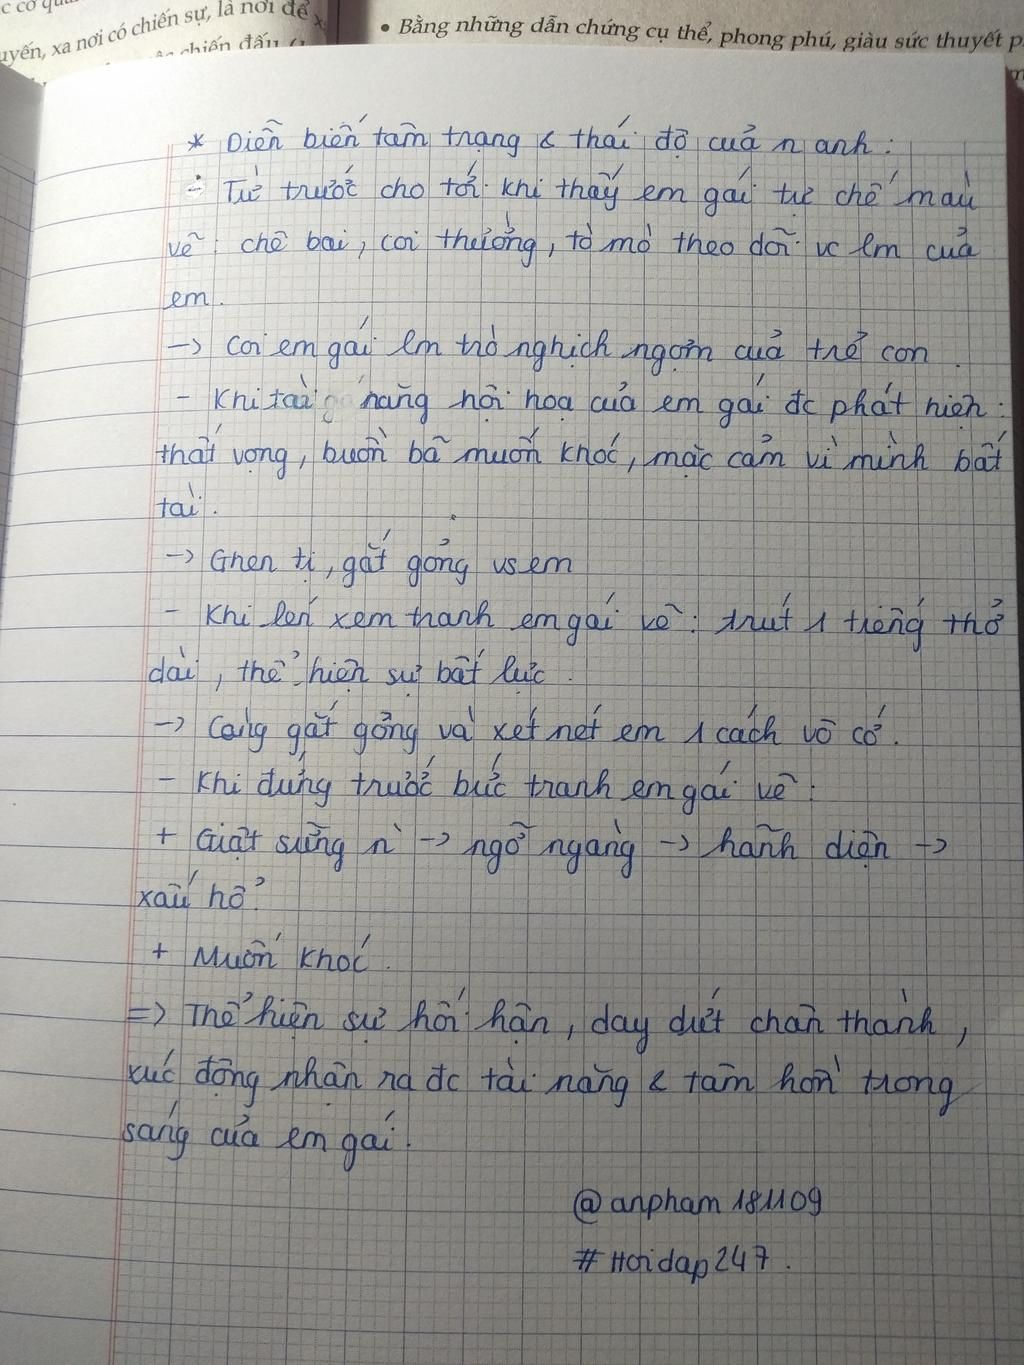 c cơ qu
uyến, xa nơi có chiến sự, là nơi để
chiến đấu
• Bằng những dẫn chứng cụ thể, phong phú, giàu sức thuyết p
* Diễn biến tâm trạng & thái độ của n anh :
- Từ trước cho tới khi thấy em gái tự chế màu
vẽ : chê bai, coi thường, tò mò theo dõi vc lm của
em.
-> Coi em gái lm trò nghịch ngợm của trẻ con .
- Khi tài năng hội họa của em gái đc phát hiện :
thất vọng, buồn bã muốn khóc, mặc cảm vì mình bất
tài.
-> Ghen tị, gắt gỏng vs em
- Khi lén xem tranh em gái vẽ : trút 1 tiếng thở
dài, thể hiện sự bất lực .
-> Càng gắt gỏng và xét nét em 1 cách vô cớ.
- Khi đứng trước bức tranh em gái vẽ :
+ Giật sững n` -> ngỡ ngàng -> hãnh diện ->
xấu hổ
+ Muốn khóc.
=> Thể hiện sự hối hận, day dứt chân thành,
xúc động nhận ra đc tài năng & tâm hồn trong
sáng của em gái.
@anpham181109
#Hoidap247.